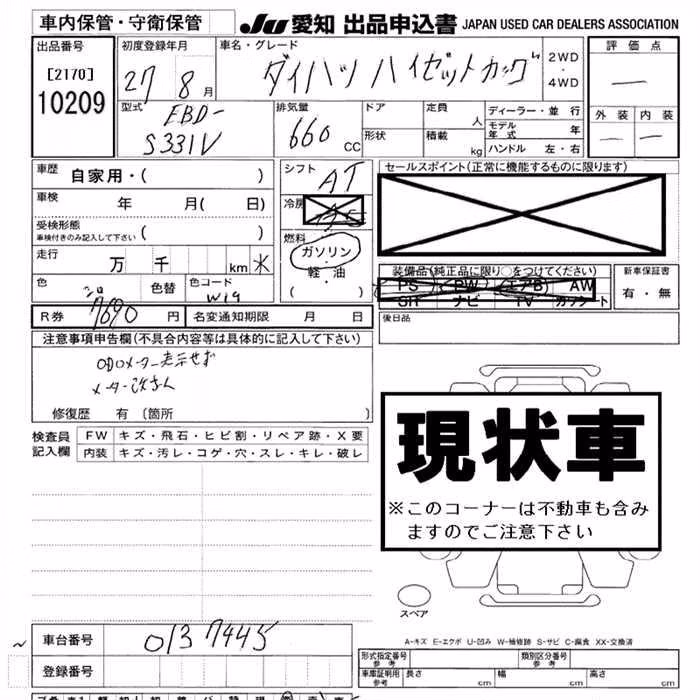 車内保管・守衛保管
JU 愛知 出品申込書 JAPAN USED CAR DEALERS ASSOCIATION
出品番号
[2170]
10209
初度登録年月
27 8月
車名・グレード
ダイハツ ハイゼットカーゴ
2WD
4WD
評価点
外装 内装
型式
EBD-
S331V
排気量
660 CC
ドア
形状
定員 人
積載 kg
ディーラー・並行
モデル年式 年
ハンドル 左・右
車歴 自家用・( )
車検 年 月( 日)
受検形態
車検付きのみ記入して下さい ( )
走行 万 千 km
色 シロ 色替
色コード W19
シフト AT
冷房
燃料
ガソリン
軽・油
( )
セールスポイント(正常に機能するものに限ります)
装備品(純正品に限り○をつけてください)
PS PW エアB AW
SR ナビ TV カセット
新車保証書
有・無
R券 7690 円
名変通知期限 月 日
後日品
注意事項申告欄(不具合内容等は具体的に記入して下さい)
ODOメーター表示せず
メーター改ざん
修復歴 有 〔箇所 〕
検査員記入欄
FW キズ・飛石・ヒビ割・リペア跡・X要
内装 キズ・汚レ・コゲ・穴・スレ・キレ・破レ
現状車
※このコーナーは不動車も含み
ますのでご注意下さい
スペア
A-キズ E-エクボ U-凹み W-補修跡 S-サビ C-腐食 XX-交換済
車台番号 0137445
登録番号
形式指定番号 参考
類別区分番号 参考
車庫証明用 参考 長さ cm 幅 cm 高さ cm